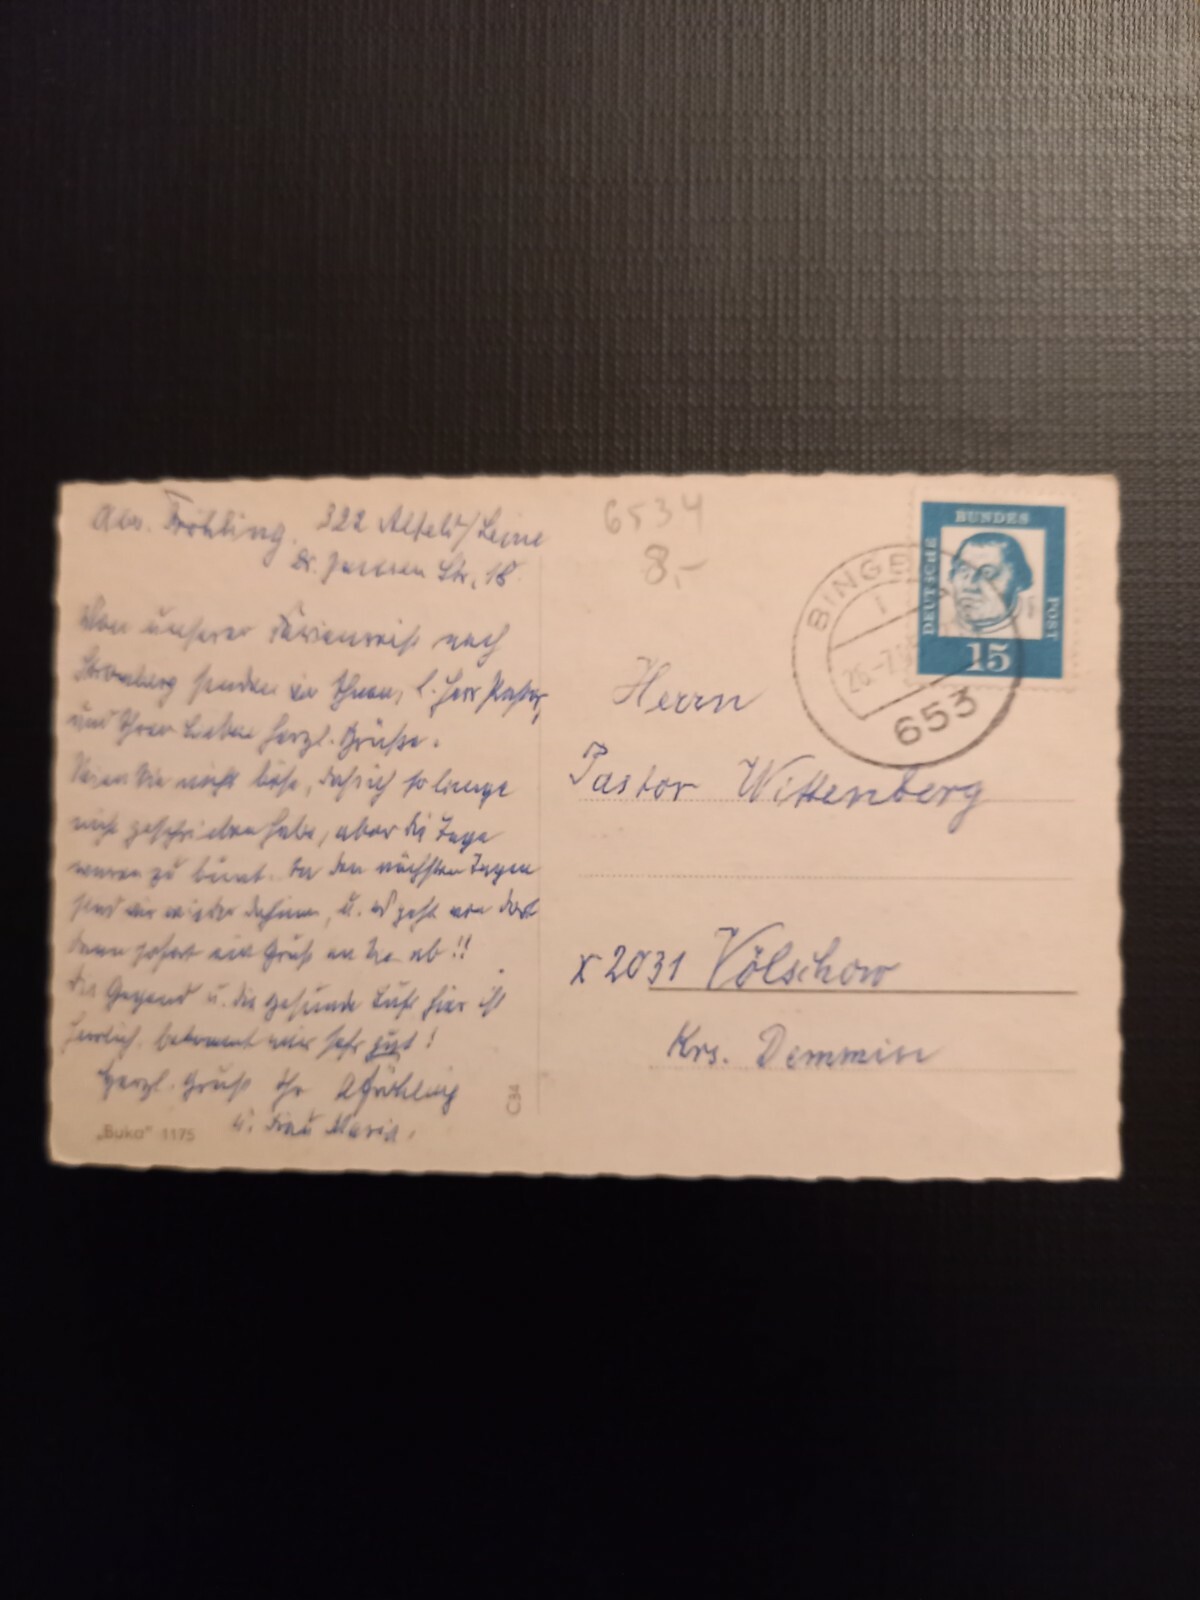 Abs. Fröhling. 322 Alfeld/Leine
Str. 18
Von unserer Ferienreise nach
Stromberg senden wir Ihnen, l. Herr Pastor,
und Ihren Lieben herzl. Grüße.
Seien Sie nicht böse, daß ich so lange
nicht geschrieben habe, aber die Tage
waren zu bunt. In den nächsten Tagen
sind wir wieder daheim, u. es geht von dort
dann sofort ein Gruß an Sie ab!!
Die Gegend u. die gesunde Luft hier ist
herrlich, bekommt uns sehr gut!
Herzl. Gruß Ihr AFröhling
u. Frau Maria.
"Buko" 1175
C34
6534
8,-
BINGE
26.-7.
653
DEUTSCHE
BUNDES
POST
15
Herrn
Pastor Wittenberg
x 2031 Völschow
Krs. Demmin